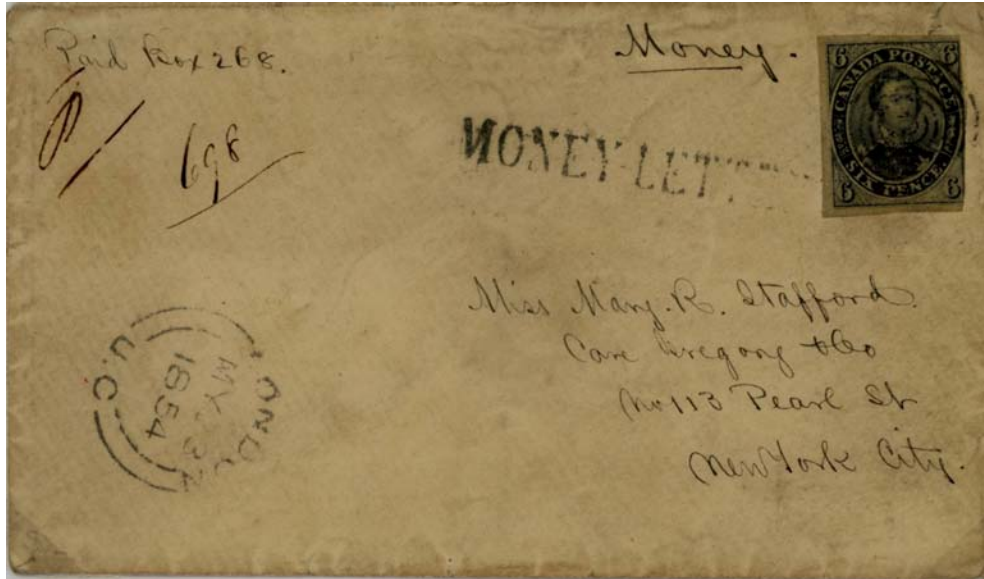 Paid Box 268.
698
Money.
MONEY-LET
6 6
CANADA POSTAGE
SIX PENCE
6 6
Miss Mary. R. Stafford
Care Gregory & Co
No 113 Pearl St
New York City.
LONDON
MY 3
1854
U.C